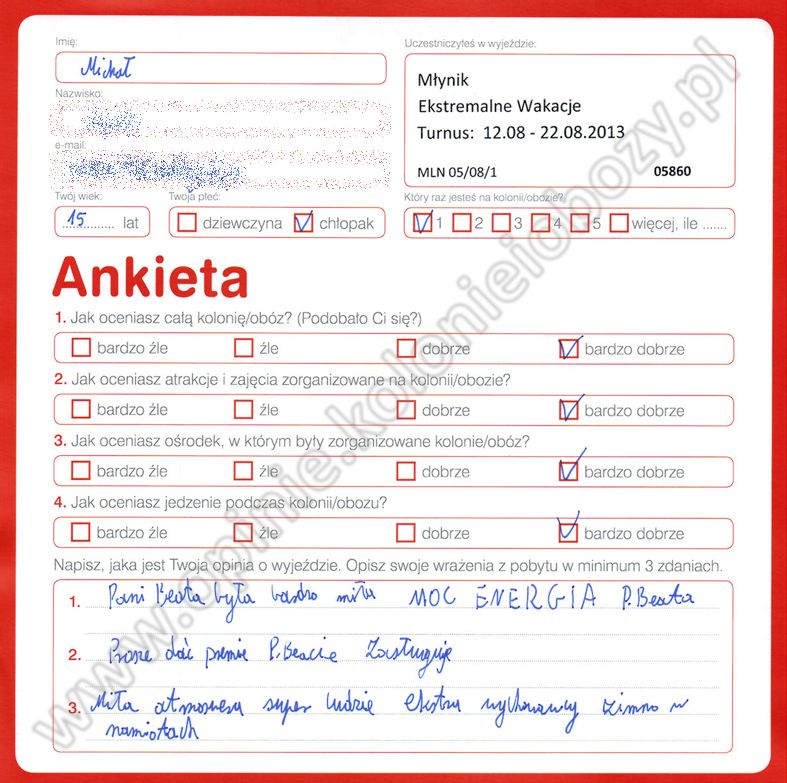 Imię:
Michał
Uczestniczyłeś w wyjeździe:
Młynik
Ekstremalne Wakacje
Turnus: 12.08 - 22.08.2013
MLN 05/08/1 05860
Nazwisko:
e-mail:
Twój wiek:
15 lat
Twoja płeć:
dziewczyna chłopak
Który raz jesteś na kolonii/obozie?
1 2 3 4 5 więcej, ile .......
Ankieta
1. Jak oceniasz całą kolonię/obóz? (Podobało Ci się?)
bardzo źle źle dobrze bardzo dobrze
2. Jak oceniasz atrakcje i zajęcia zorganizowane na kolonii/obozie?
bardzo źle źle dobrze bardzo dobrze
3. Jak oceniasz ośrodek, w którym były zorganizowane kolonie/obóz?
bardzo źle źle dobrze bardzo dobrze
4. Jak oceniasz jedzenie podczas kolonii/obozu?
bardzo źle źle dobrze bardzo dobrze
Napisz, jaka jest Twoja opinia o wyjeździe. Opisz swoje wrażenia z pobytu w minimum 3 zdaniach.
1. Pani Beata była bardzo miła MOC ENERGIA P. Beata
2. Prosze dać premie P. Beacie Zasługuje
3. Miła atmosfera super ludzie ekstra wychowawcy zimno w
namiotach
www.opinie.kolonieiobozy.pl